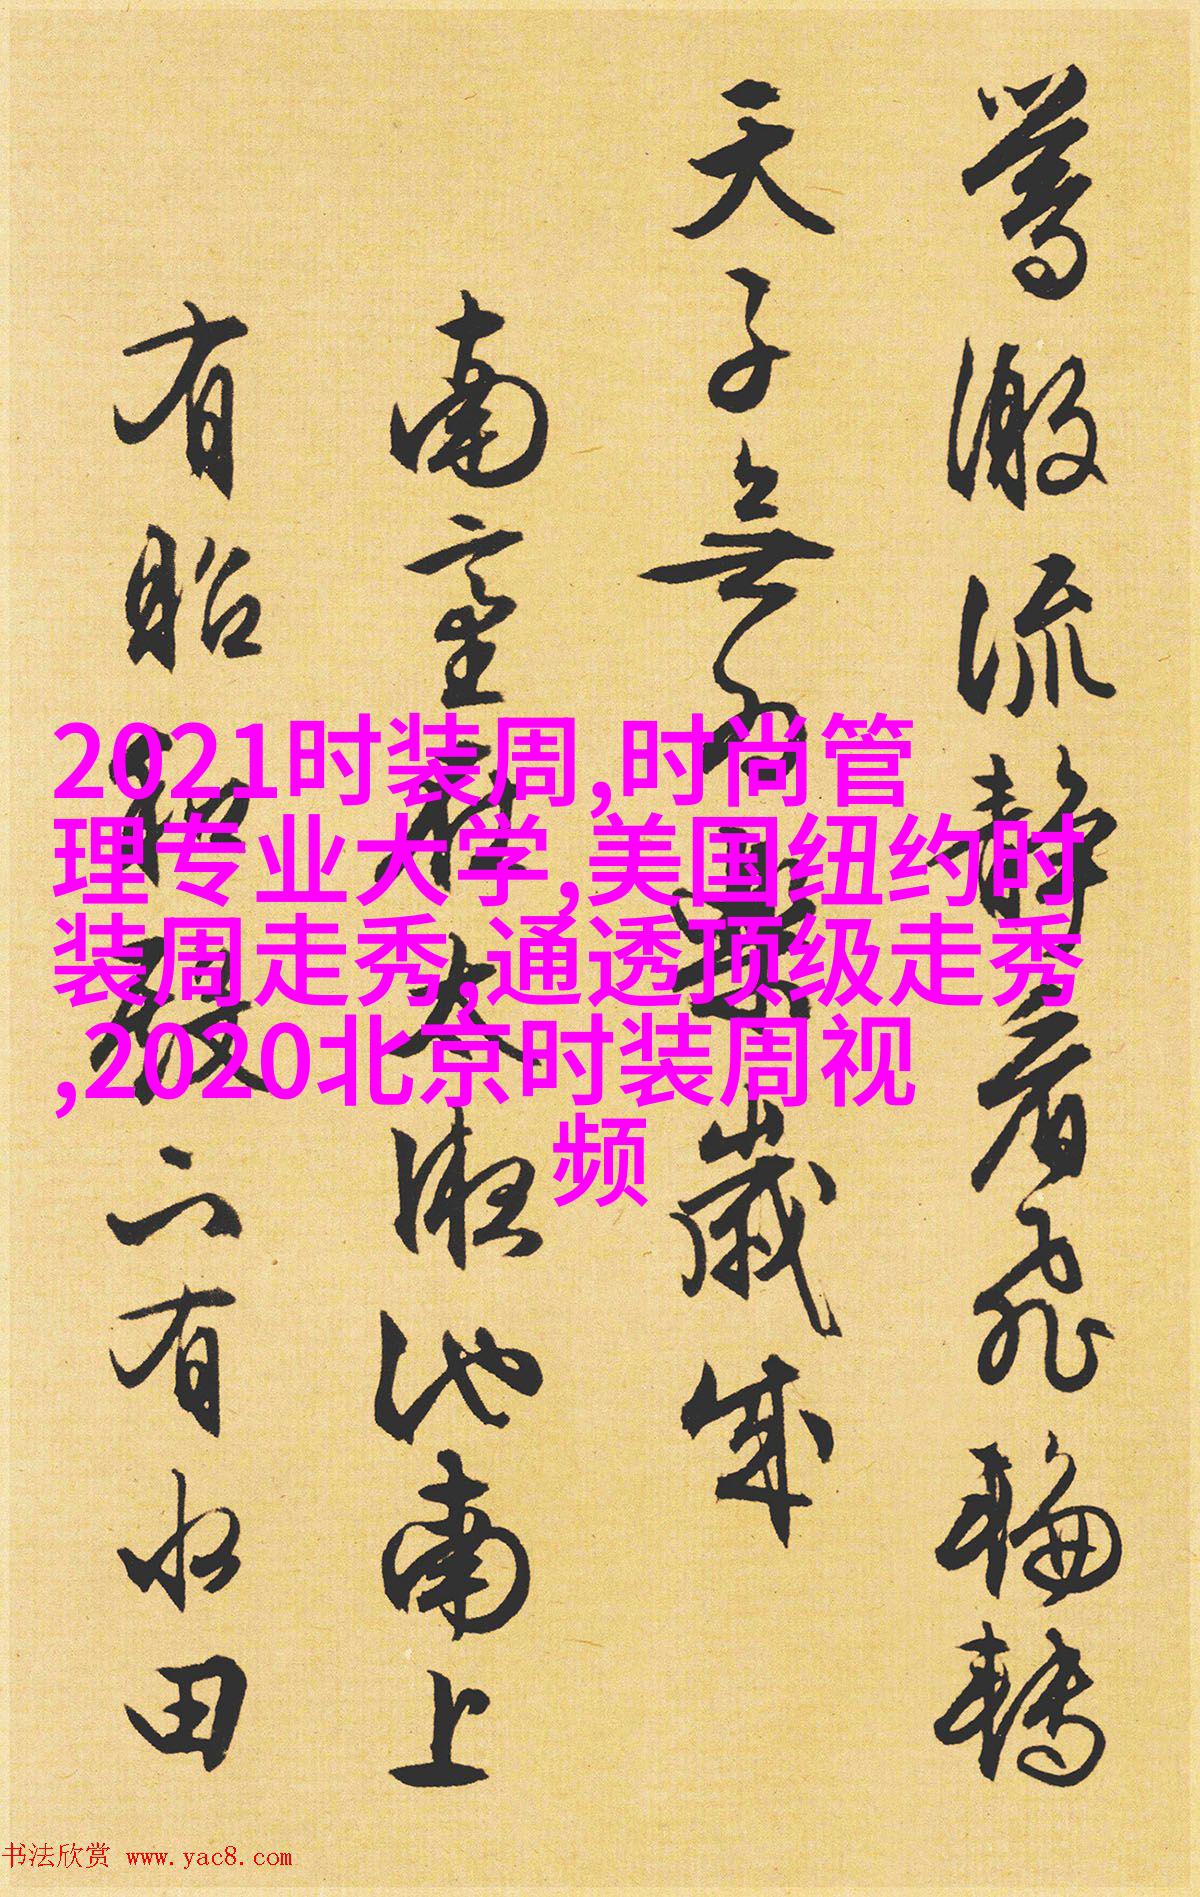 激流静看飛輪轉
天子無歲成
南池南上
有有水田
2021时装周,时尚管
理专业大学,美国纽约时
装周走秀,通透顶级走秀
,2020北京时装周视
频
书法欣赏 www.yac8.com